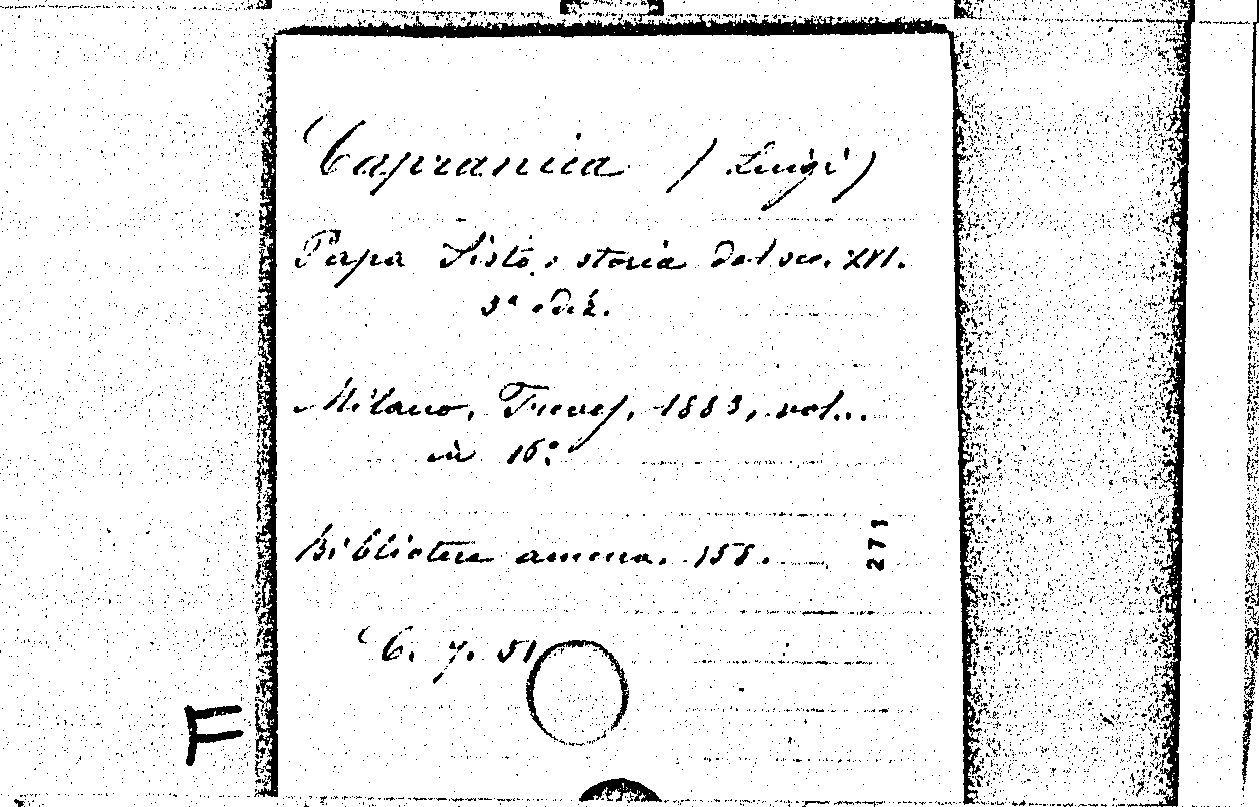 Capranica (Luigi)
Papa Sisto, storia del sec. XVI.
3ª ediz.
Milano, Treves, 1883, vol..
in 16º
Biblioteca amena. 158.
271
C. y. 51
F